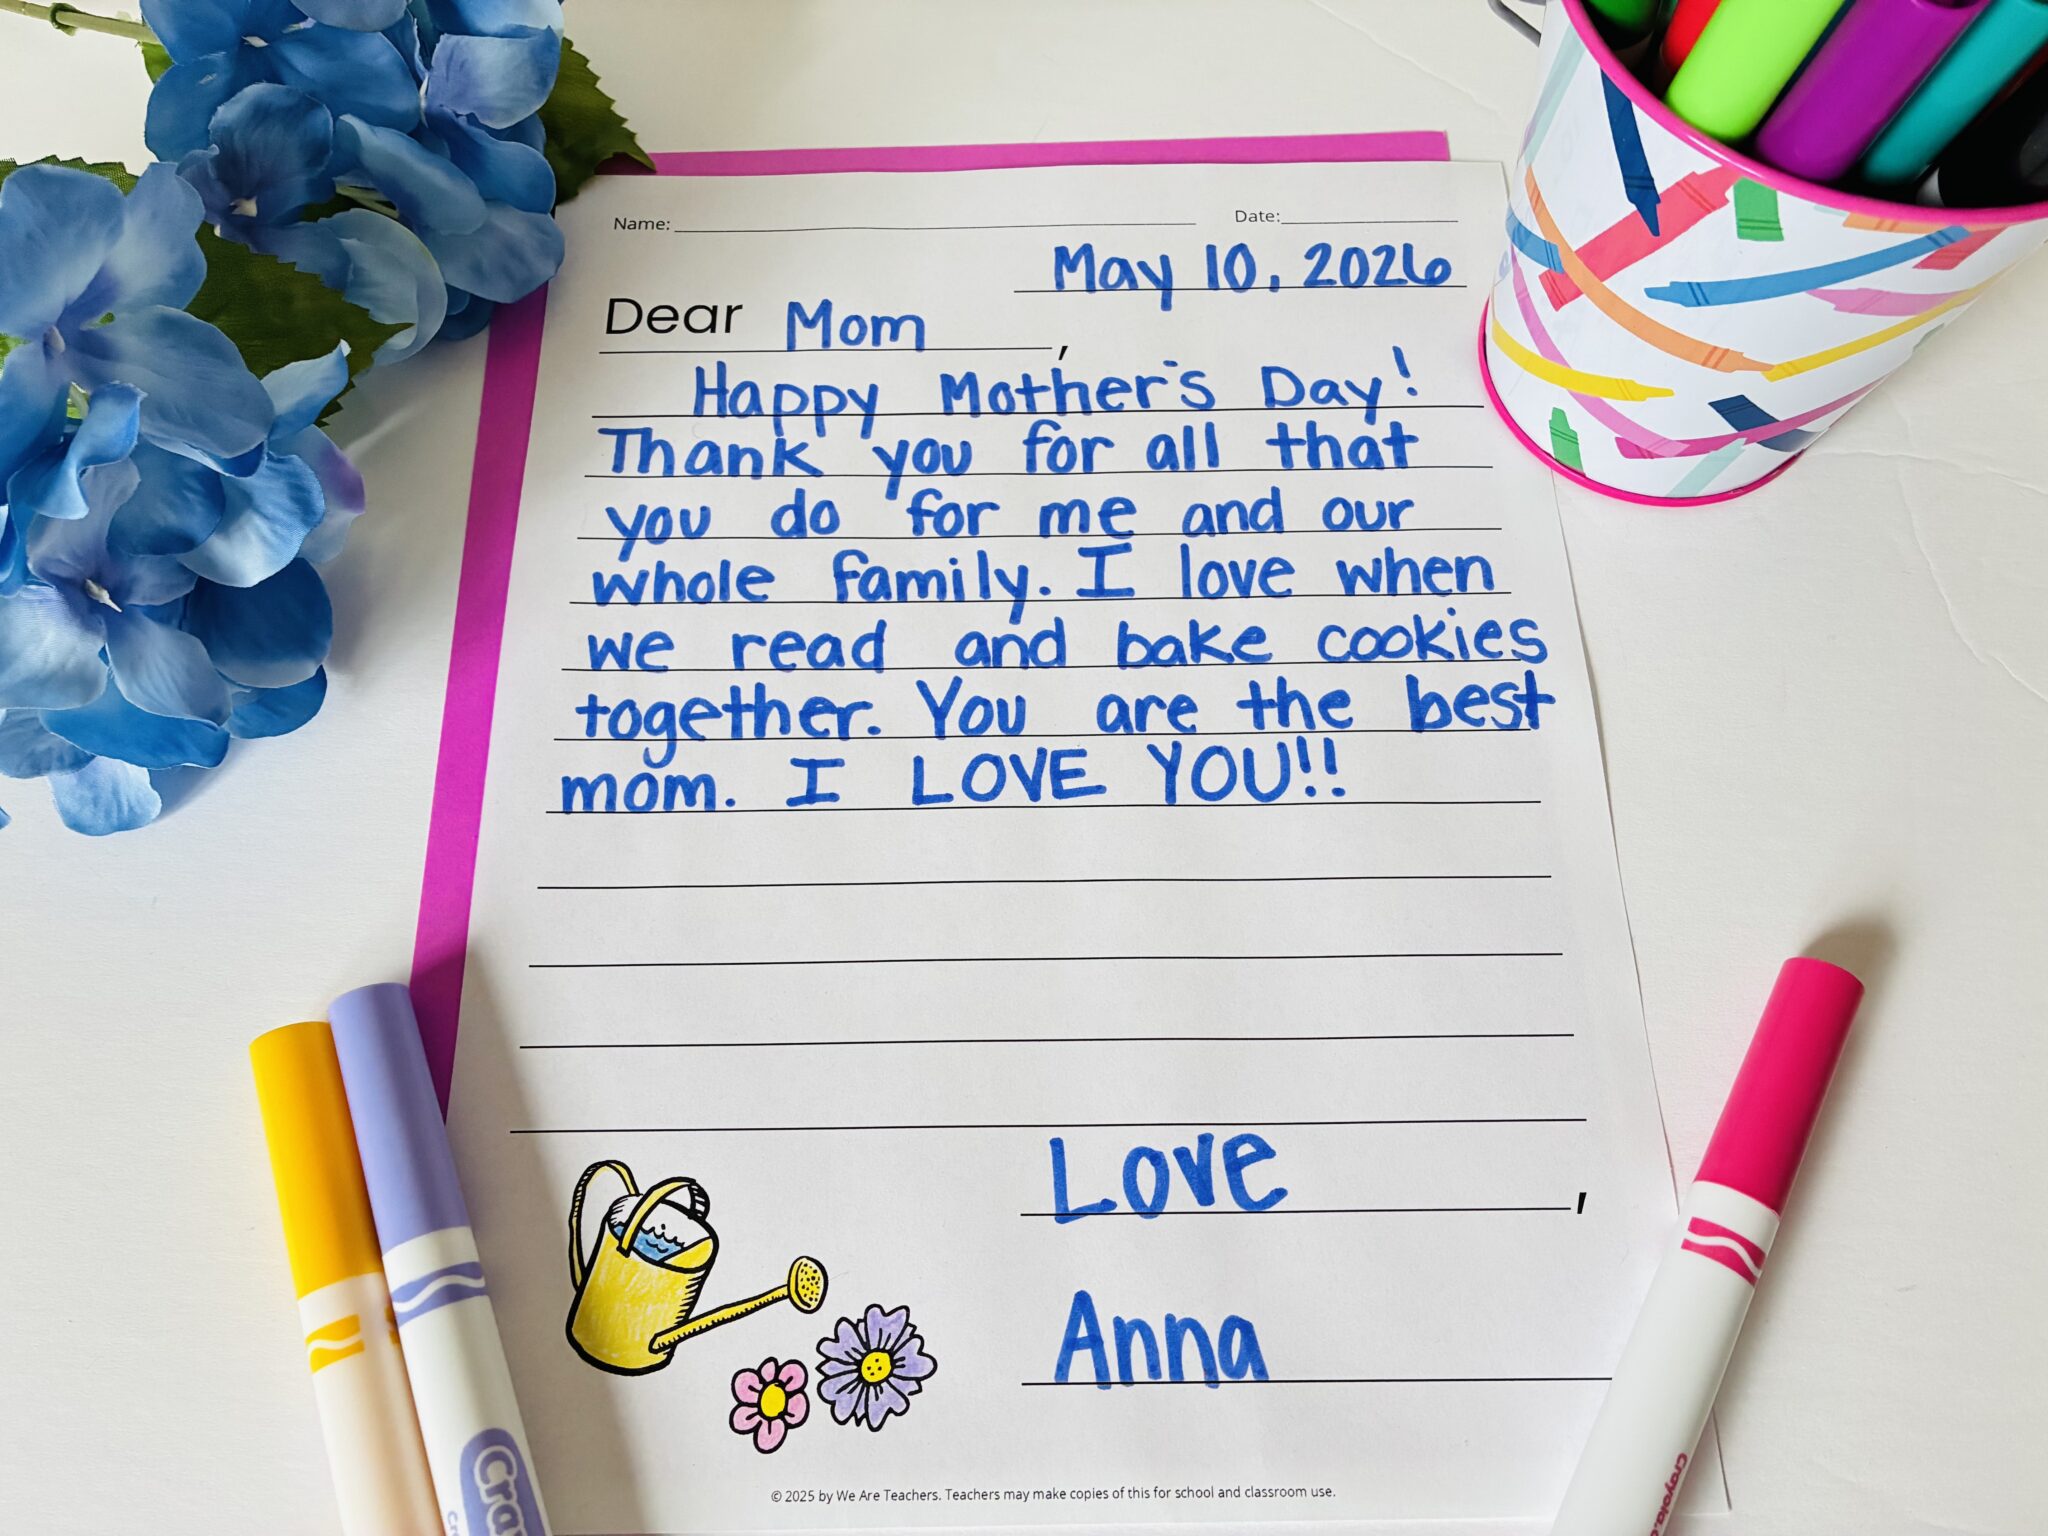 Name: Date:
May 10, 2026
Dear Mom,
Happy Mother's Day!
Thank you for all that
you do for me and our
whole family. I love when
we read and bake cookies
together. You are the best
mom. I LOVE YOU!!
Love,
Anna
© 2025 by We Are Teachers. Teachers may make copies of this for school and classroom use.
Cra
Crayola